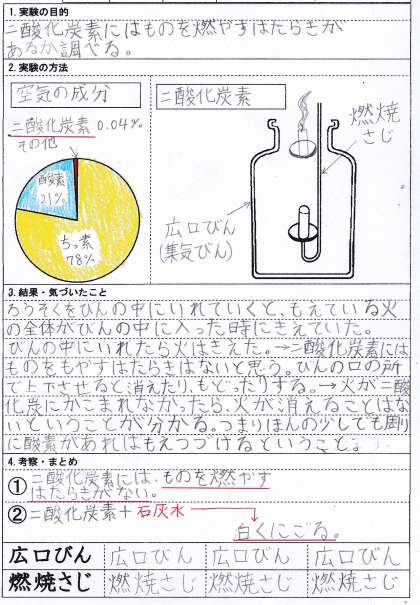 1. 実験の目的
二酸化炭素にはものを燃やすはたらきが
あるか調べる。
2. 実験の方法
空気の成分
二酸化炭素 0.04%
その他
酸素
21%
ちっ素
78%
二酸化炭素
燃焼
さじ
広口びん
(集気びん)
3. 結果・気づいたこと
ろうそくをびんの中にいれていくと、もえている火
の全体がびんの中に入った時にきえていた。
びんの中にいれたら火はきえた。→二酸化炭素には
ものをもやすはたらきはないと思う。びんの口の所
で上下させると消えたり、もどったりする。→火が二酸
化炭にかこまれなかったら、火が消えることはな
いということが分かる。つまりほんの少しでも周り
に酸素があればもえつづけるということ。
4. 考察・まとめ
① 二酸化炭素には、ものを燃やす
はたらきがない。
② 二酸化炭素+石灰水
白くにごる。
広口びん 広口びん 広口びん 広口びん
燃焼さじ 燃焼さじ 燃焼さじ 燃焼さじ